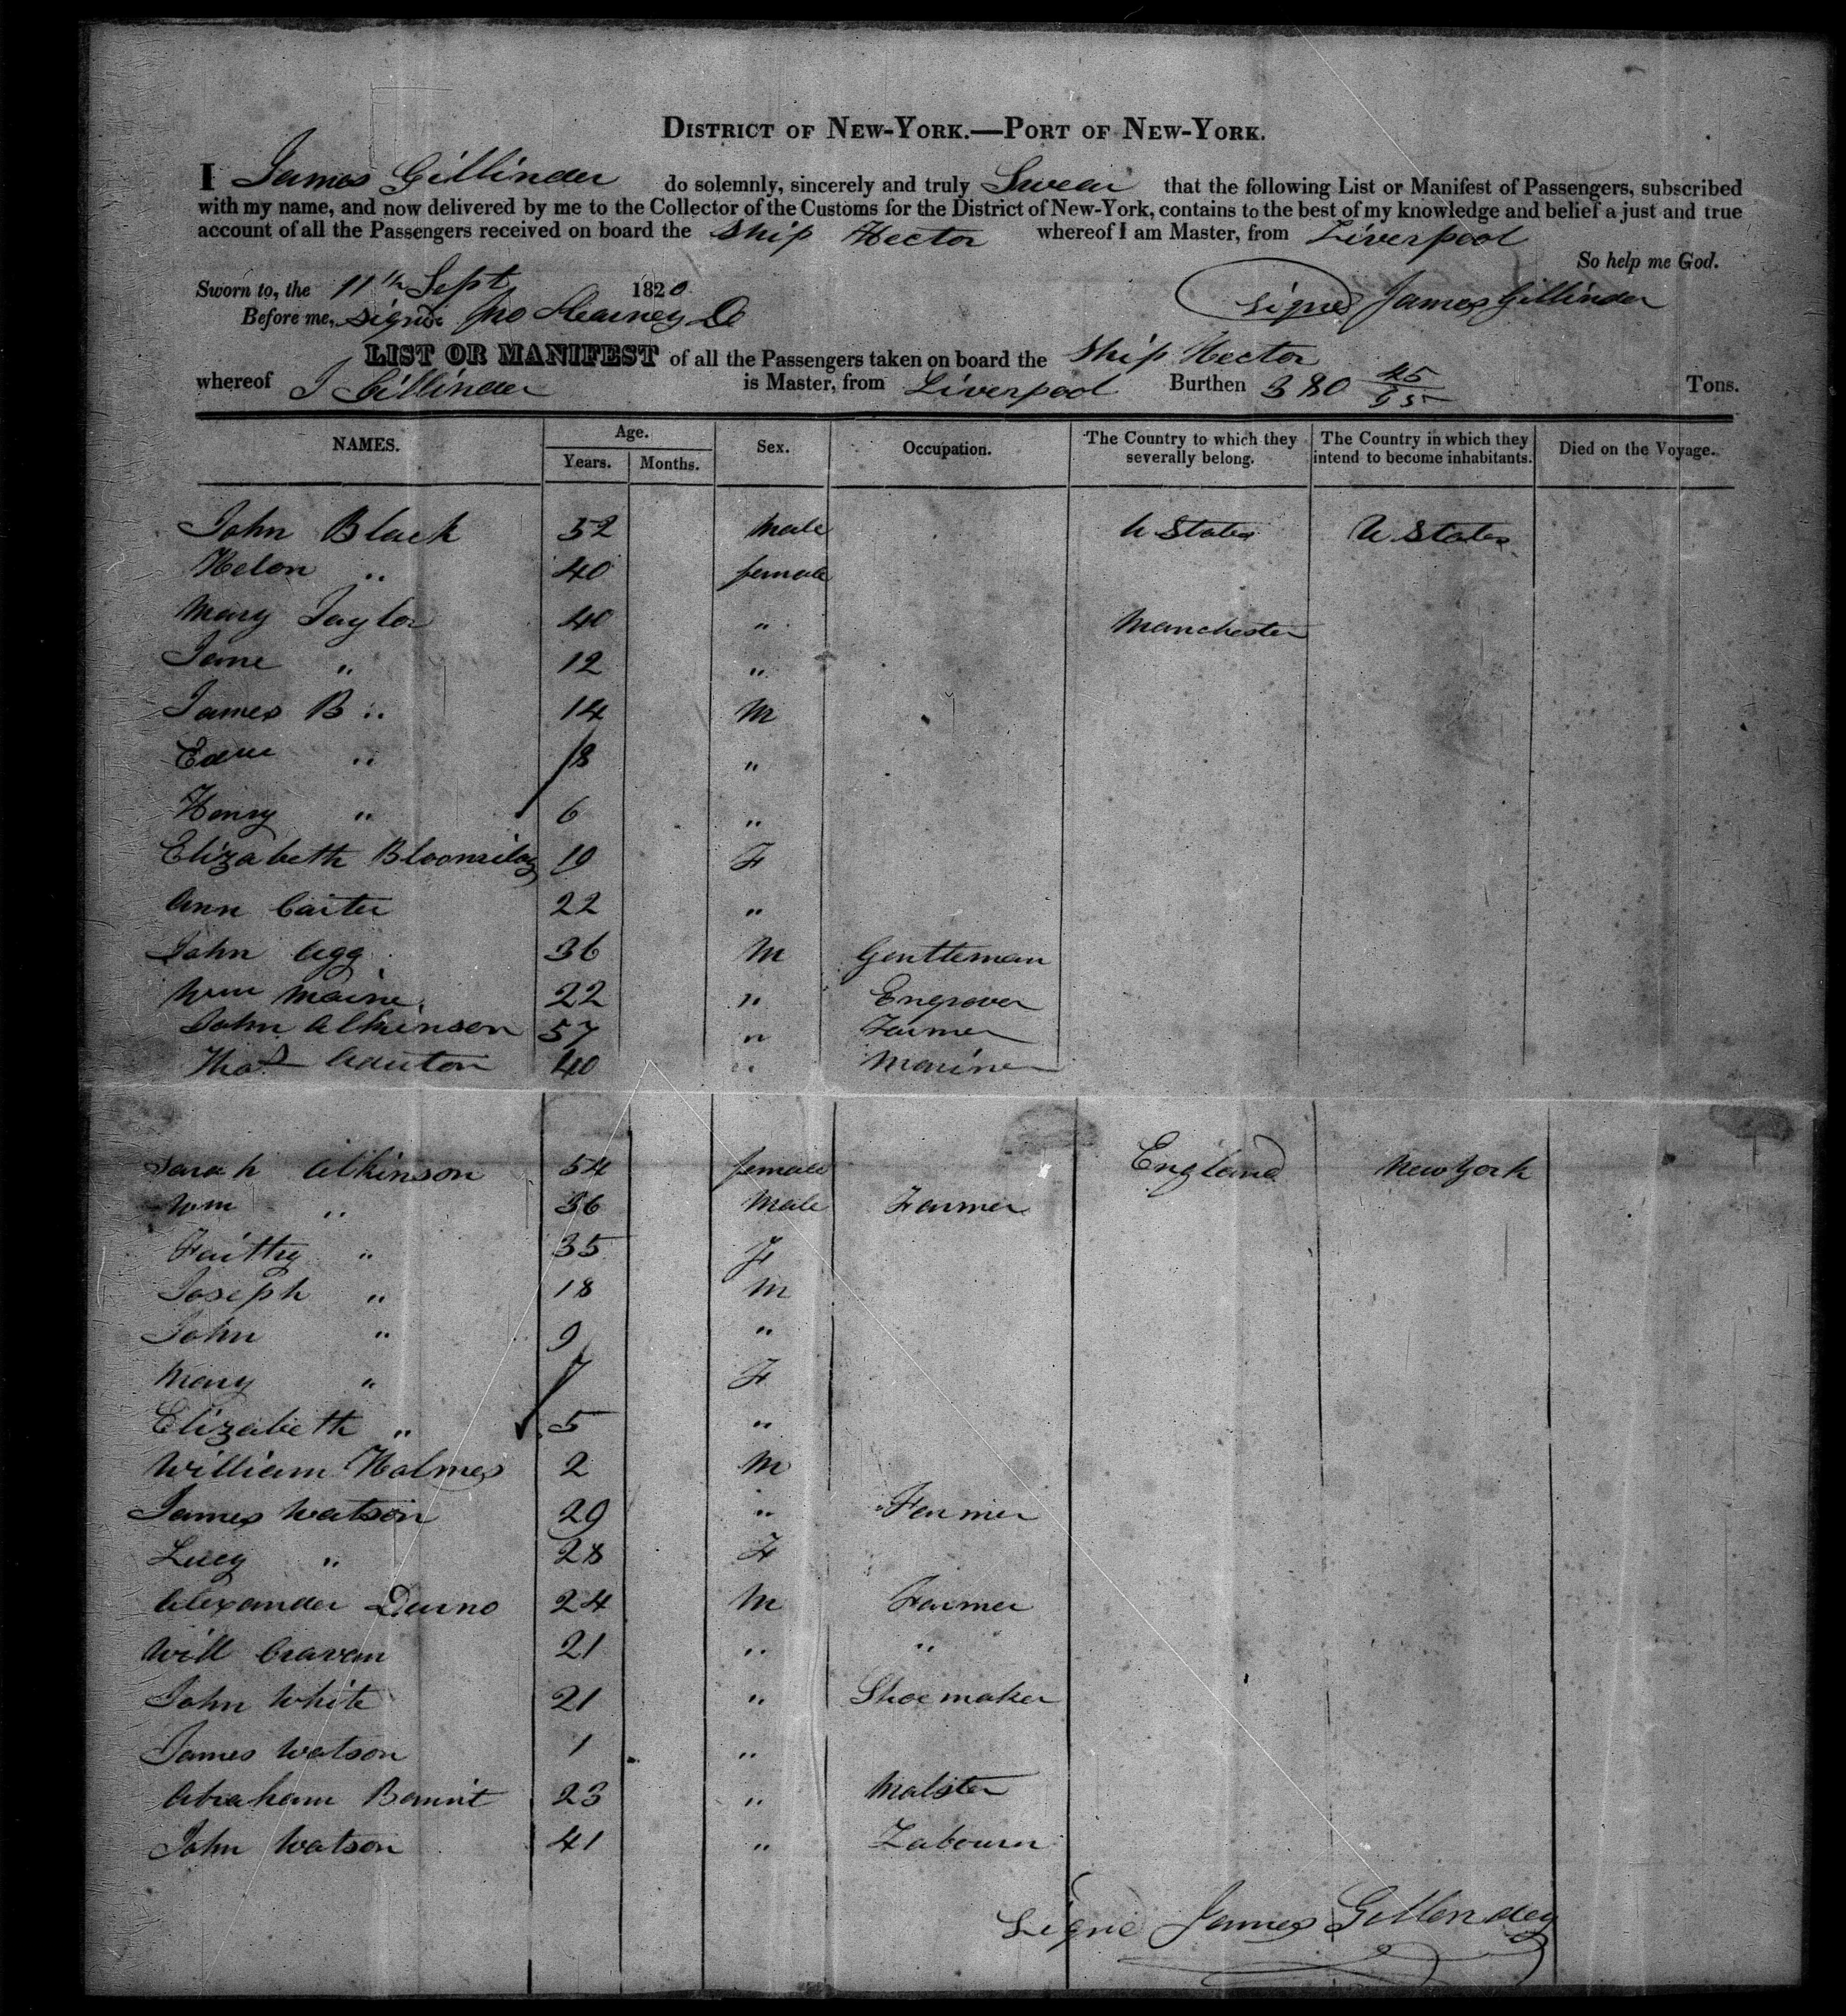 DISTRICT OF NEW-YORK.—PORT OF NEW-YORK.
I James Gillinder do solemnly, sincerely and truly Swear that the following List or Manifest of Passengers, subscribed
with my name, and now delivered by me to the Collector of the Customs for the District of New-York, contains to the best of my knowledge and belief a just and true
account of all the Passengers received on board the Ship Hector whereof I am Master, from Liverpool
So help me God.
Sworn to, the 11th Sept 1820
Before me, signd Jno Signed James Gillinder
LIST OR MANIFEST of all the Passengers taken on board the Ship Hector
whereof J Gillinder is Master, from Liverpool Burthen 380 45/95 Tons.
NAMES. Age. Years. Months. Sex. Occupation. The Country to which they severally belong. The Country in which they intend to become inhabitants. Died on the Voyage.
John Black 52 male U States U States
Helen " 40 female
Mary Taylor 40 " Manchester
Jane " 12 "
James B " 14 M
" 8 "
Henry " 6 "
Elizabeth 19 F
Ann Carter 22 "
John Agg 36 M Gentleman
Wm Maine 22 " Engraver
John Atkinson 57 " Farmer
Thos 40 " Mariner
Sarah Atkinson 54 female England New York
Wm " 36 Male Farmer
" 35 F
Joseph " 18 M
John " 9 "
Mary " 7 F
Elizabeth " 5 "
William Holmes 2 M
James Watson 29 " Farmer
Lucy " 28 F
Alexander Durno 24 M Farmer
Will Craven 21 " "
John White 21 " Shoemaker
James Watson 1 "
Abraham 23 " Malster
John Watson 41 " Labourer
Signd James Gillender